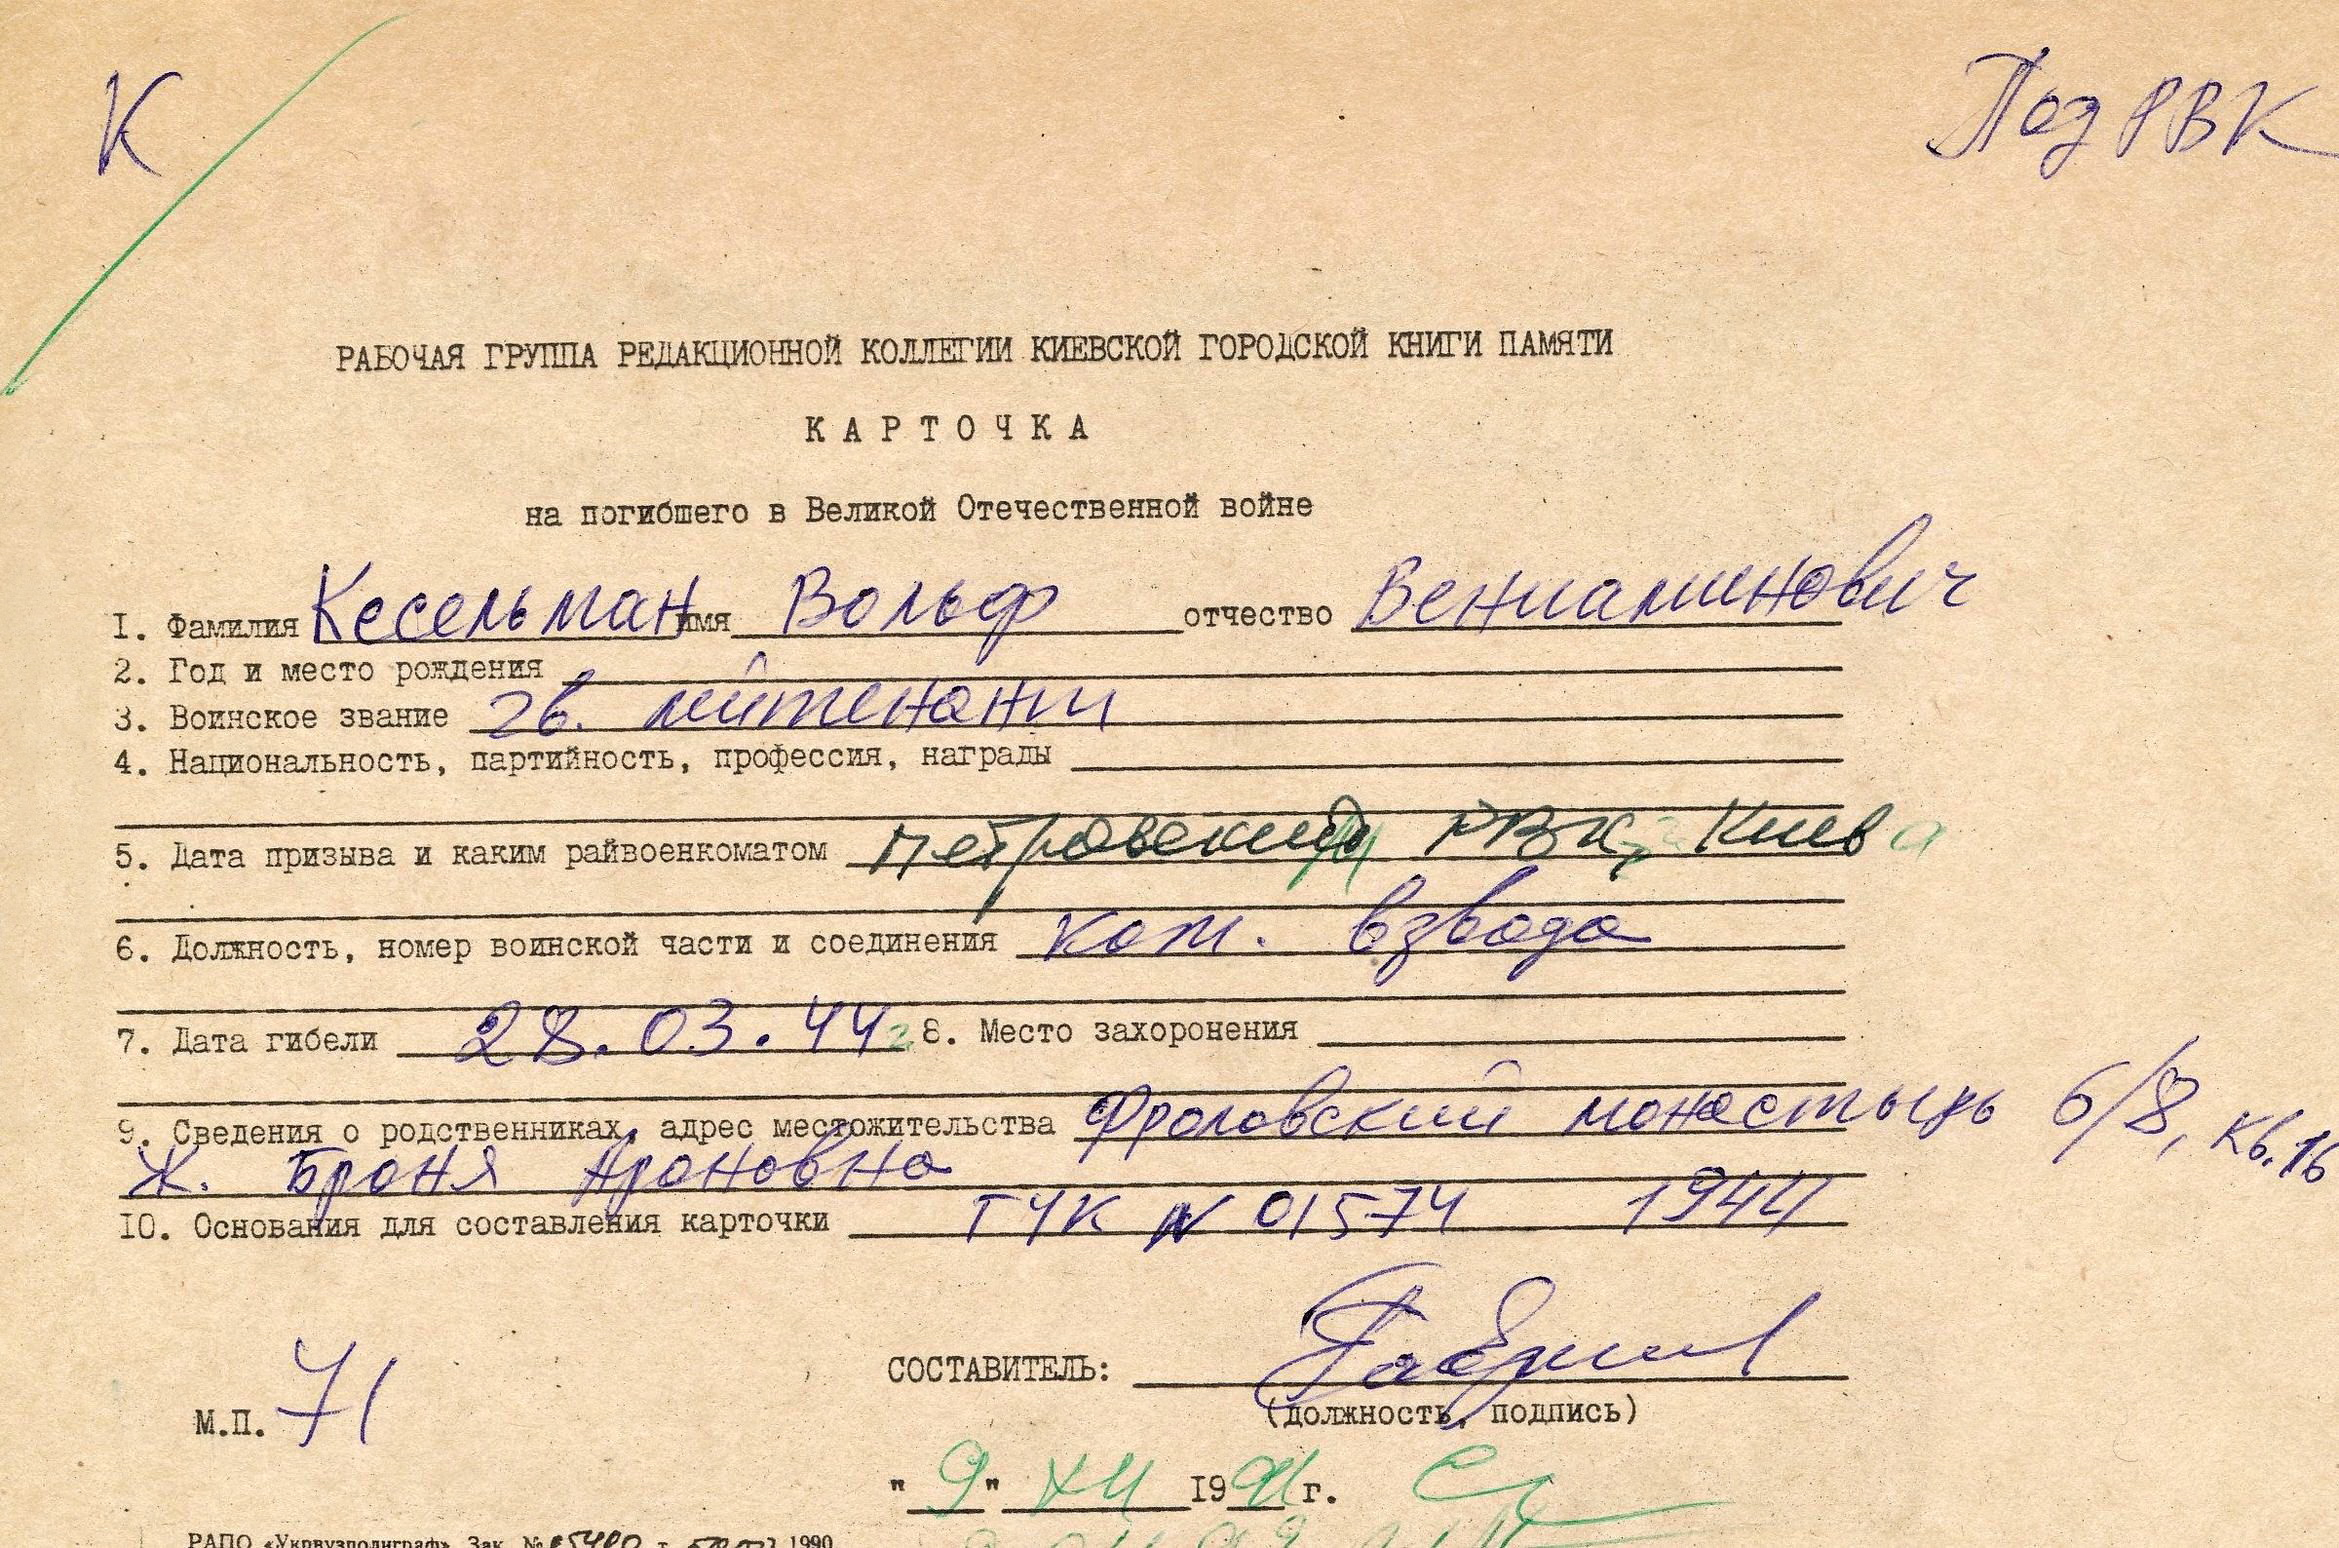 К
Под РВК
РАБОЧАЯ ГРУППА РЕДАКЦИОННОЙ КОЛЛЕГИИ КИЕВСКОЙ ГОРОДСКОЙ КНИГИ ПАМЯТИ
КАРТОЧКА
на погибшего в Великой Отечественной войне
I. Фамилия Кесельман имя Вольф отчество Вениаминович
2. Год и место рождения
3. Воинское звание гв. лейтенант
4. Национальность, партийность, профессия, награды
5. Дата призыва и каким райвоенкоматом Петровским РВК, г. Киева
6. Должность, номер воинской части и соединения ком. взвода
7. Дата гибели 28.03.44 г 8. Место захоронения
9. Сведения о родственниках, адрес местожительства Фроловский монастырь 6/8, кв.16
ж. Броня Ароновна
IO. Основания для составления карточки ГЧК N 01574 1944
СОСТАВИТЕЛЬ:
М.П. 71
(должность, подпись)
"9" XII 1991 г.
РАПО «Укрвузполиграф» Зак. № 1990